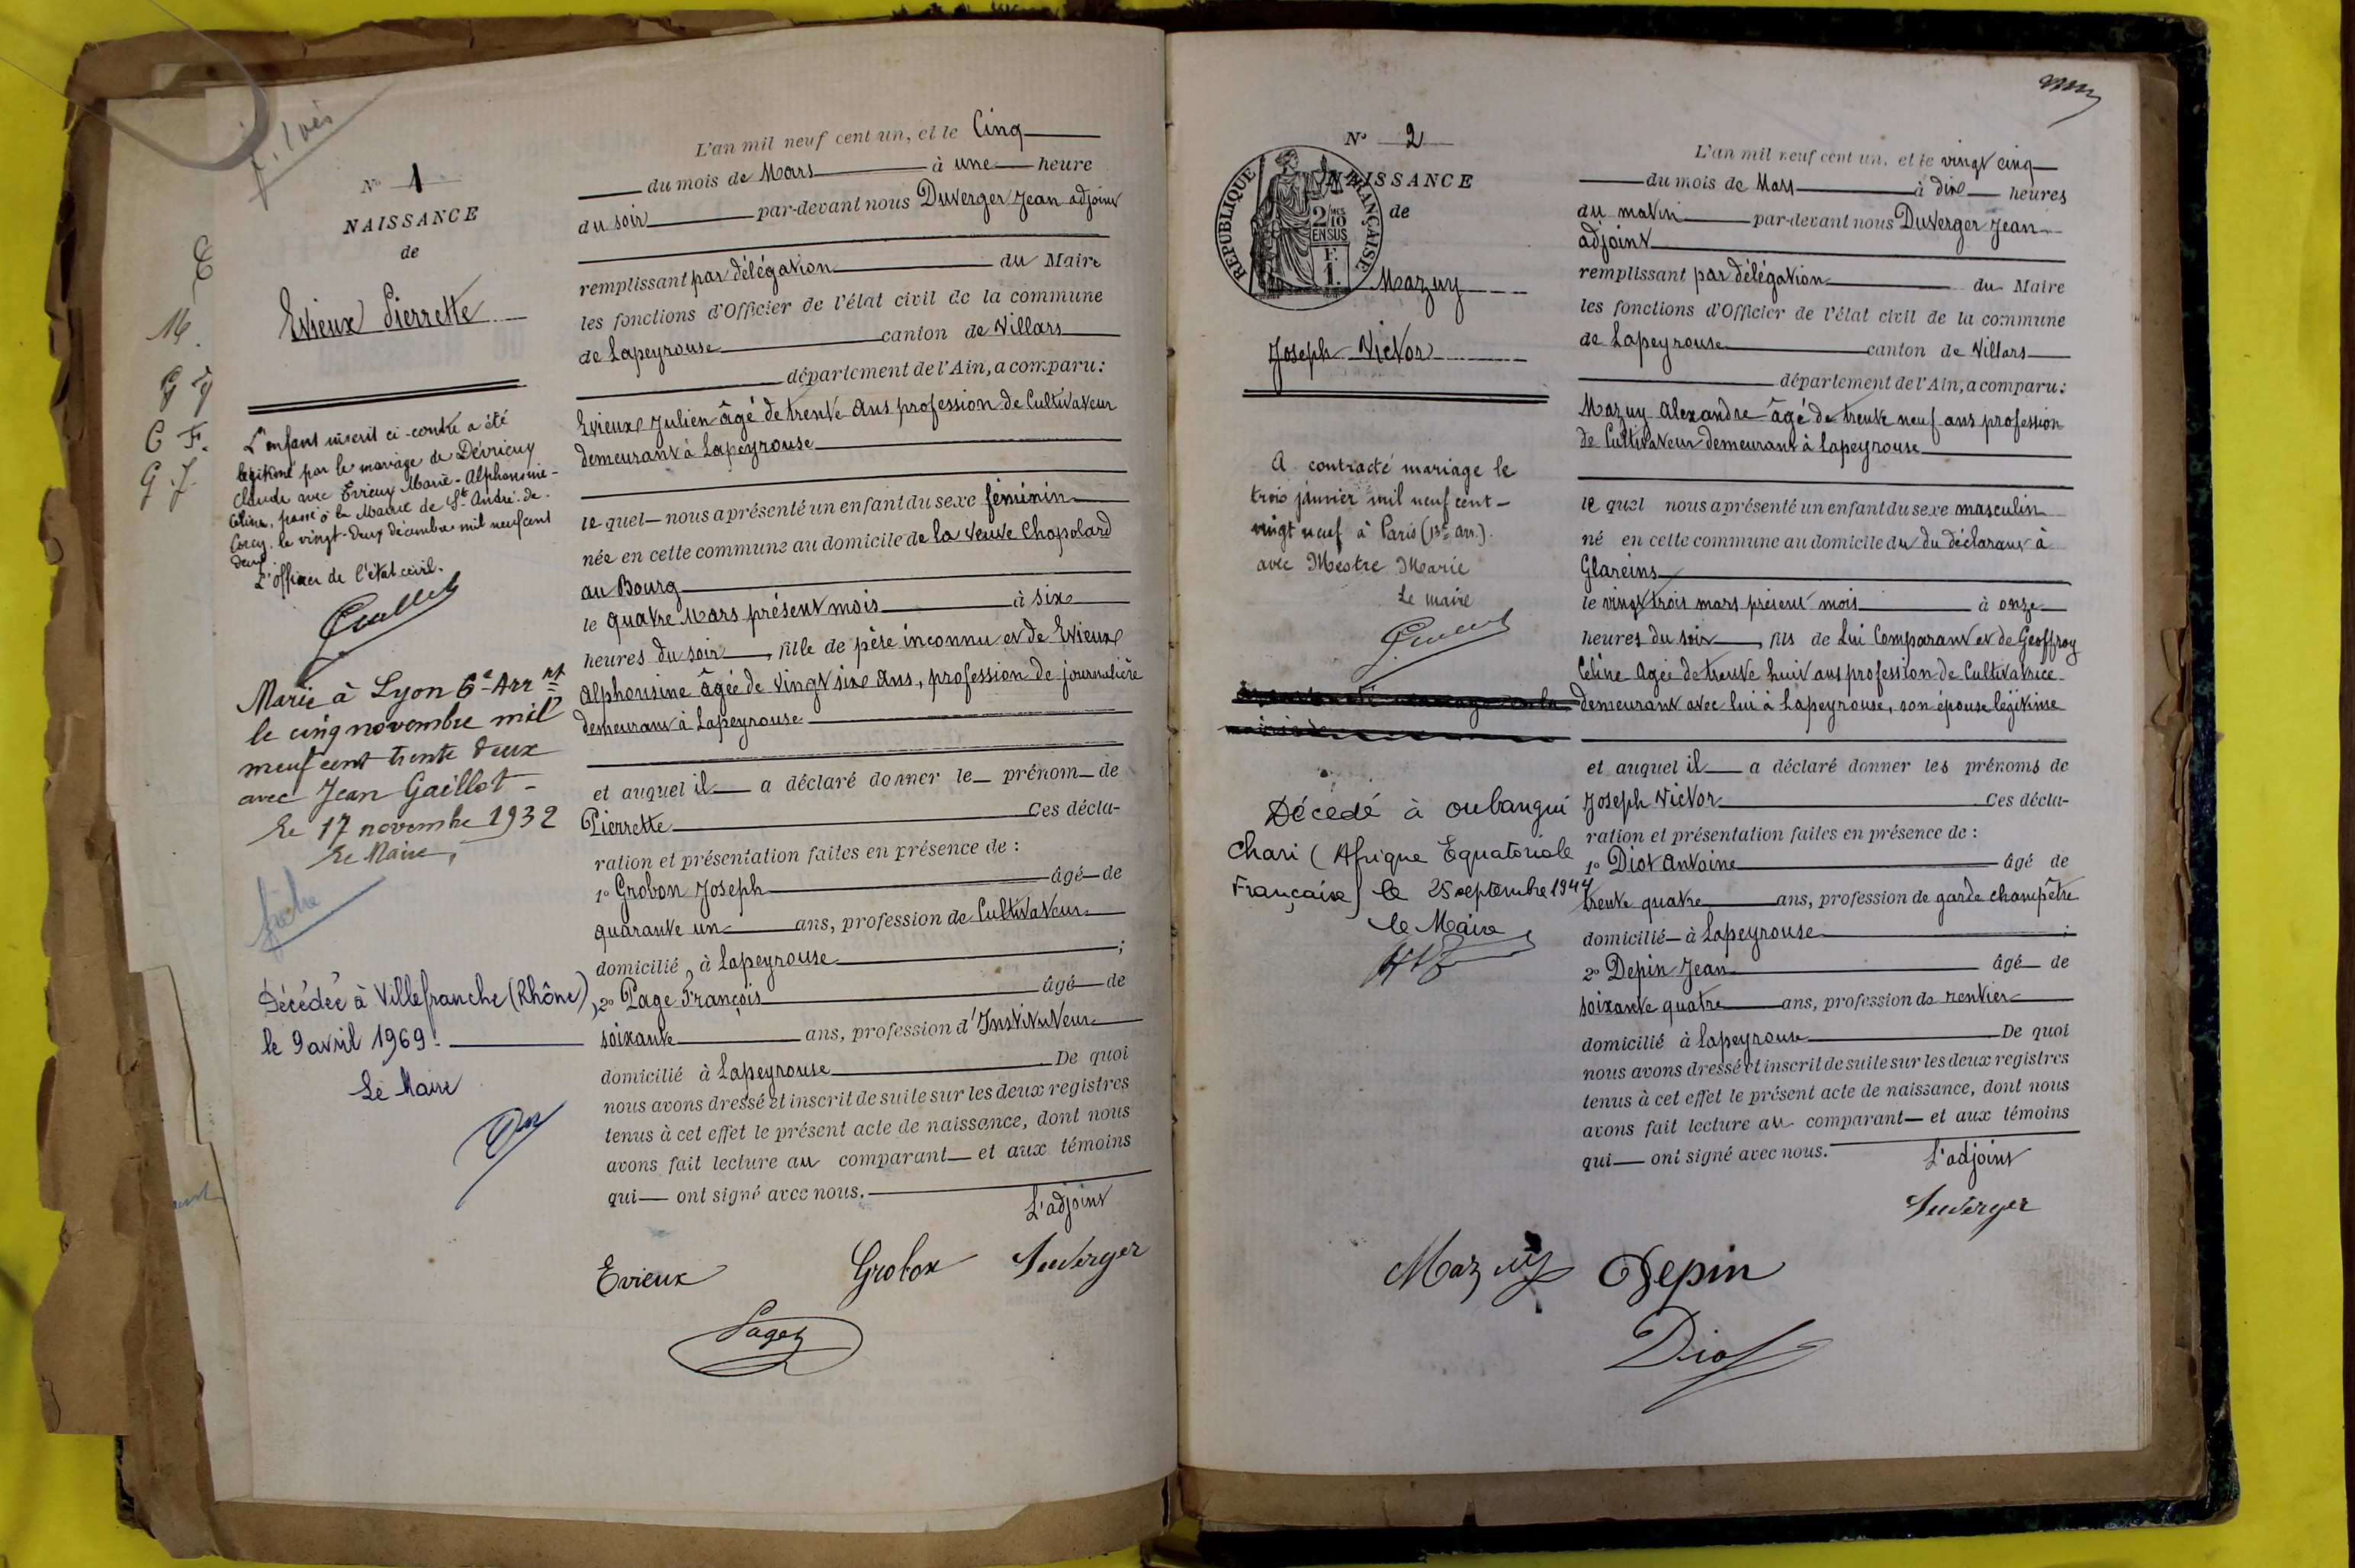 f. lvés
N° 1
NAISSANCE
de
Evieux Pierrette
E
M.
G g
C F.
G J.
L'enfant inscrit ci-contre a été
légitimé par le mariage de Dévrieux
Claude avec Evieux Marie-Alphonsine-
Céline, passé à la Mairie de St André-de-
Corcy, le vingt-deux décembre mil neuf cent
deux.
L'officier de l'état civil.
Marié à Lyon 6e Arrnt
le cinq novembre mil
neuf cent trente deux
avec Jean Gaillot -
Le 17 novembre 1932
Le Maire,
fiche
Décédée à Villefranche (Rhône),
le 9 avril 1969.
Le Maire
L'an mil neuf cent un, et le Cinq
du mois de Mars à une heure
du soir par-devant nous Duverger Jean adjoint
remplissant par délégation du Maire
les fonctions d'Officier de l'état civil de la commune
de Lapeyrouse canton de Villars
département de l'Ain, a comparu :
Evieux Julien âgé de trente ans profession de Cultivateur
demeurant à Lapeyrouse
le quel nous a présenté un enfant du sexe féminin
née en cette commune au domicile de la Veuve Chapolard
au Bourg
le quatre Mars présent mois à six
heures du soir, fille de père inconnu et de Evieux
Alphonsine âgée de vingt six ans, profession de journalière
demeurant à Lapeyrouse
et auquel il a déclaré donner le prénom de
Pierrette Ces décla-
ration et présentation faites en présence de :
1° Grobon Joseph âgé de
quarante un ans, profession de Cultivateur
domicilié à Lapeyrouse ;
2° Page François âgé de
soixante ans, profession d'Instituteur
domicilié à Lapeyrouse De quoi
nous avons dressé et inscrit de suite sur les deux registres
tenus à cet effet le présent acte de naissance, dont nous
avons fait lecture au comparant et aux témoins
qui ont signé avec nous.
L'adjoint
Evieux Grobon Duverger
Page
N° 2
NAISSANCE
de
RÉPUBLIQUE FRANÇAISE
2/10 MES
EN SUS
F.
1.
Mazuy
Joseph Victor
A contracté mariage le
trois janvier mil neuf cent-
vingt neuf à Paris (13e arr.).
avec Mestre Marie
Le maire
Décédé à oubangui
Chari (Afrique Equatoriale
Française) le 25 septembre 1944
le Maire
L'an mil neuf cent un, et le vingt cinq
du mois de Mars à dix heures
du matin par-devant nous Duverger Jean
adjoint
remplissant par délégation du Maire
les fonctions d'Officier de l'état civil de la commune
de Lapeyrouse canton de Villars
département de l'Ain, a comparu :
Mazuy Alexandre âgé de trente neuf ans profession
de Cultivateur demeurant à Lapeyrouse
le quel nous a présenté un enfant du sexe masculin
né en cette commune au domicile du du déclarant à
Glareins
le vingt trois mars présent mois à onze
heures du soir, fils de Lui Comparant et de Geoffroy
Céline Agée de trente huit ans profession de Cultivatrice
demeurant avec lui à Lapeyrouse, son épouse légitime
et auquel il a déclaré donner les prénoms de
Joseph Victor Ces décla-
ration et présentation faites en présence de :
1° Diot Antoine âgé de
trente quatre ans, profession de garde champêtre
domicilié à Lapeyrouse ;
2° Depin Jean âgé de
soixante quatre ans, profession de rentier
domicilié à Lapeyrouse De quoi
nous avons dressé et inscrit de suite sur les deux registres
tenus à cet effet le présent acte de naissance, dont nous
avons fait lecture au comparant et aux témoins
qui ont signé avec nous.
L'adjoint
Duverger
Mazuy Depin
Diot